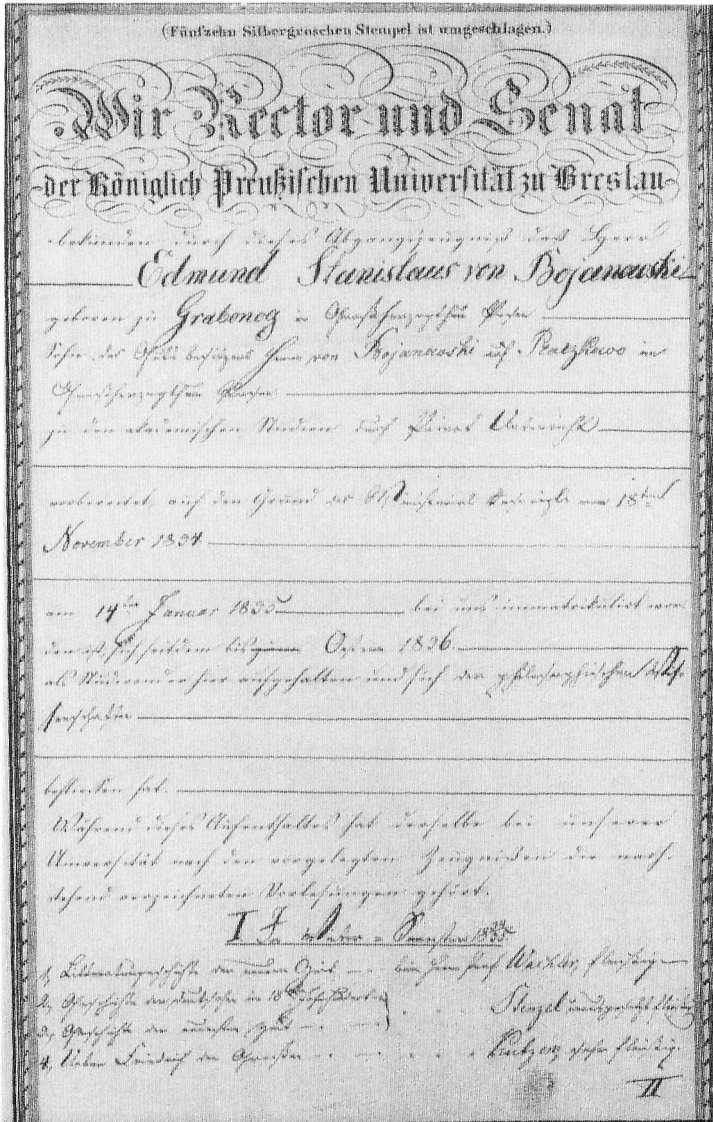 (Fünfzehn Silbergroschen Stempel ist umgeschlagen.)
Wir Rector und Senat
der Königlich Preußischen Universität zu Breslau
bekunden durch dieses Abgangszeugniß daß Herr
Edmund Stanislaus von Bojanowski
geboren zu Grabonog in Großherzogthum Posen
Sohn des Herrn von Bojanowski auf im
Großherzogthum Posen
zu den akademischen Studien durch Privat Unterricht
vorbereitet, auf den Grund des Ministerial Rescripts vom 18ten
November 1834
am 14ten Januar 1835 bei uns immatrikulirt wor-
den ist, sich seitdem bis zum Ostern 1836
als Studirender hier aufgehalten und sich der philosophischen Wis-
senschaften
beflissen hat.
Während dieses Aufenthaltes hat derselbe bei unserer
Universität nach den vorgelegten Zeugnißen die nach-
stehend verzeichneten Vorlesungen gehört.
I Im Winter = Semester 1834/35
1, Litteraturgeschichte der neuern Zeit beim Herrn Prof Wachler, fleissig
2, Geschichte der Deutschen im 18ten Jahrhundert
3, Geschichte der neuesten Zeit Stenzel
4, Ueber Friedrich den Grossen Kutzen, sehr fleißig.
II